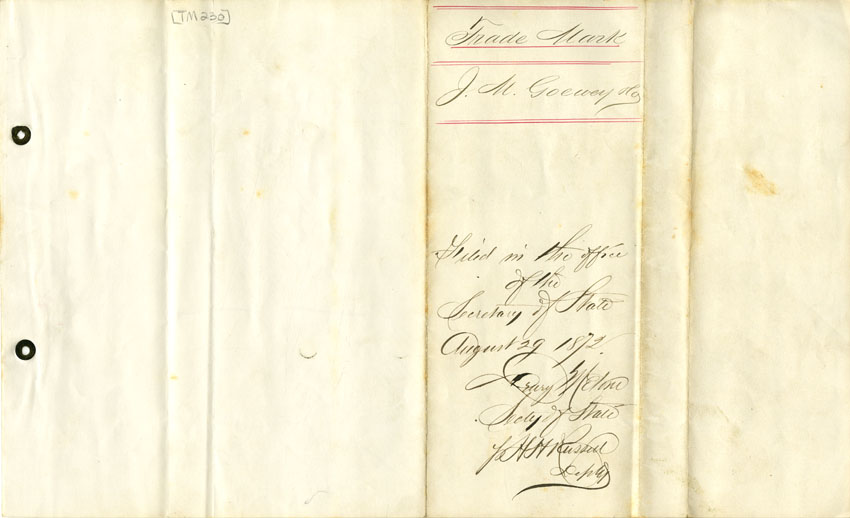 [TM 230]
Trade Mark
J. M. Goewey & Co
Filed in the office
of the
Secretary of State
August 29 1872.
Drury Melone
Secty of State
H H Russell
Deputy